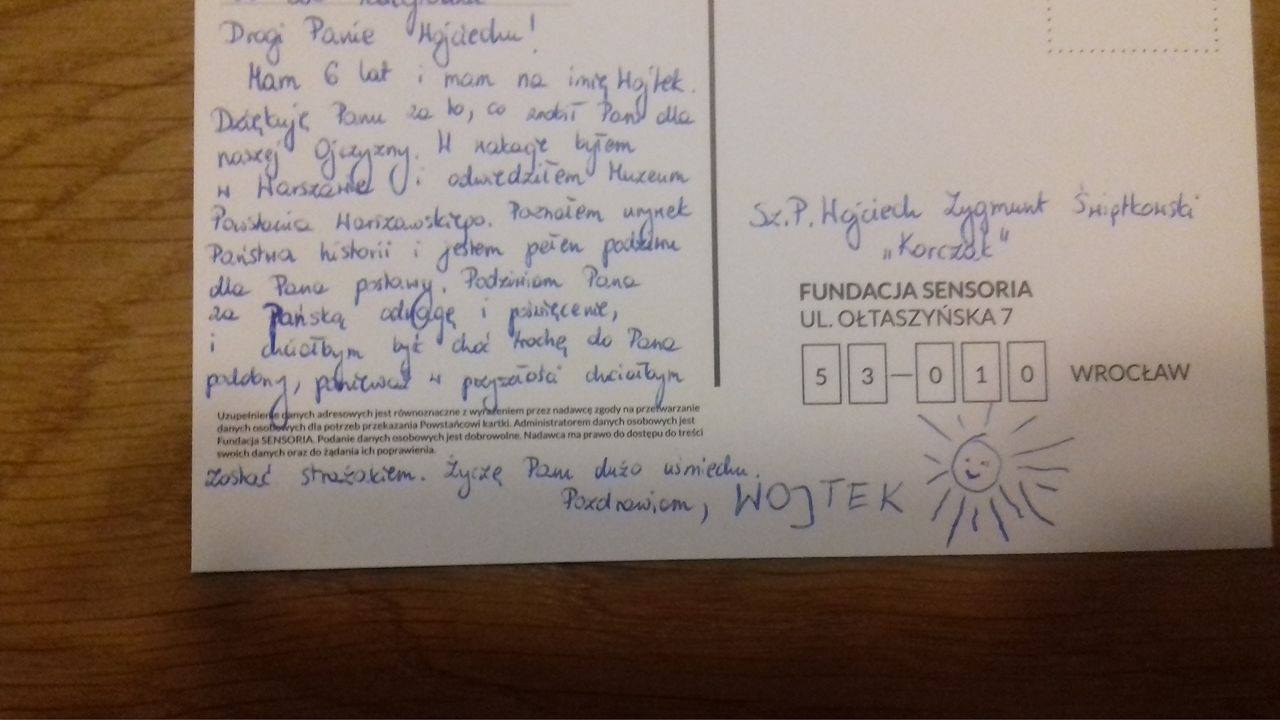 Drogi Panie Wojciechu!
Mam 6 lat i mam na imię Wojtek.
Dziękuję Panu za to, co zrobił Pan dla
naszej Ojczyzny. W wakacje byłem
w Warszawie i odwiedziłem Muzeum
Powstania Warszawskiego. Poznałem urywek
Państwa historii i jestem pełen podziwu
dla Pana postawy. Podziwiam Pana
za Pańską odwagę i poświęcenie,
i chciałbym być choć trochę do Pana
podobny, ponieważ w przyszłości chciałbym
Uzupełnienie danych adresowych jest równoznaczne z wyrażeniem przez nadawcę zgody na przetwarzanie
danych osobowych dla potrzeb przekazania Powstańcowi kartki. Administratorem danych osobowych jest
Fundacja SENSORIA. Podanie danych osobowych jest dobrowolne. Nadawca ma prawo do dostępu do treści
swoich danych oraz do żądania ich poprawienia.
zostać strażakiem. Życzę Panu dużo uśmiechu.
Pozdrawiam, WOJTEK
Sz. P. Wojciech Zygmunt Świątkowski
„Korczak"
FUNDACJA SENSORIA
UL. OŁTASZYŃSKA 7
53-010 WROCŁAW